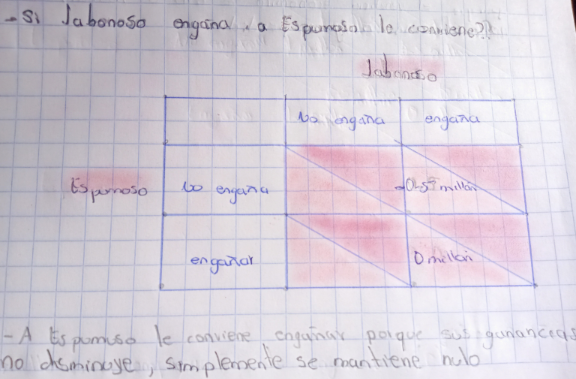 - Si Jabonoso engaña a Espumoso le conviene??
Jabonoso
No engaña engaña
Espumoso No engaña -0.5 millón
engañar 0 millón
- A Espumoso le conviene engañar porque sus ganancias
no disminuye, simplemente se mantiene nulo